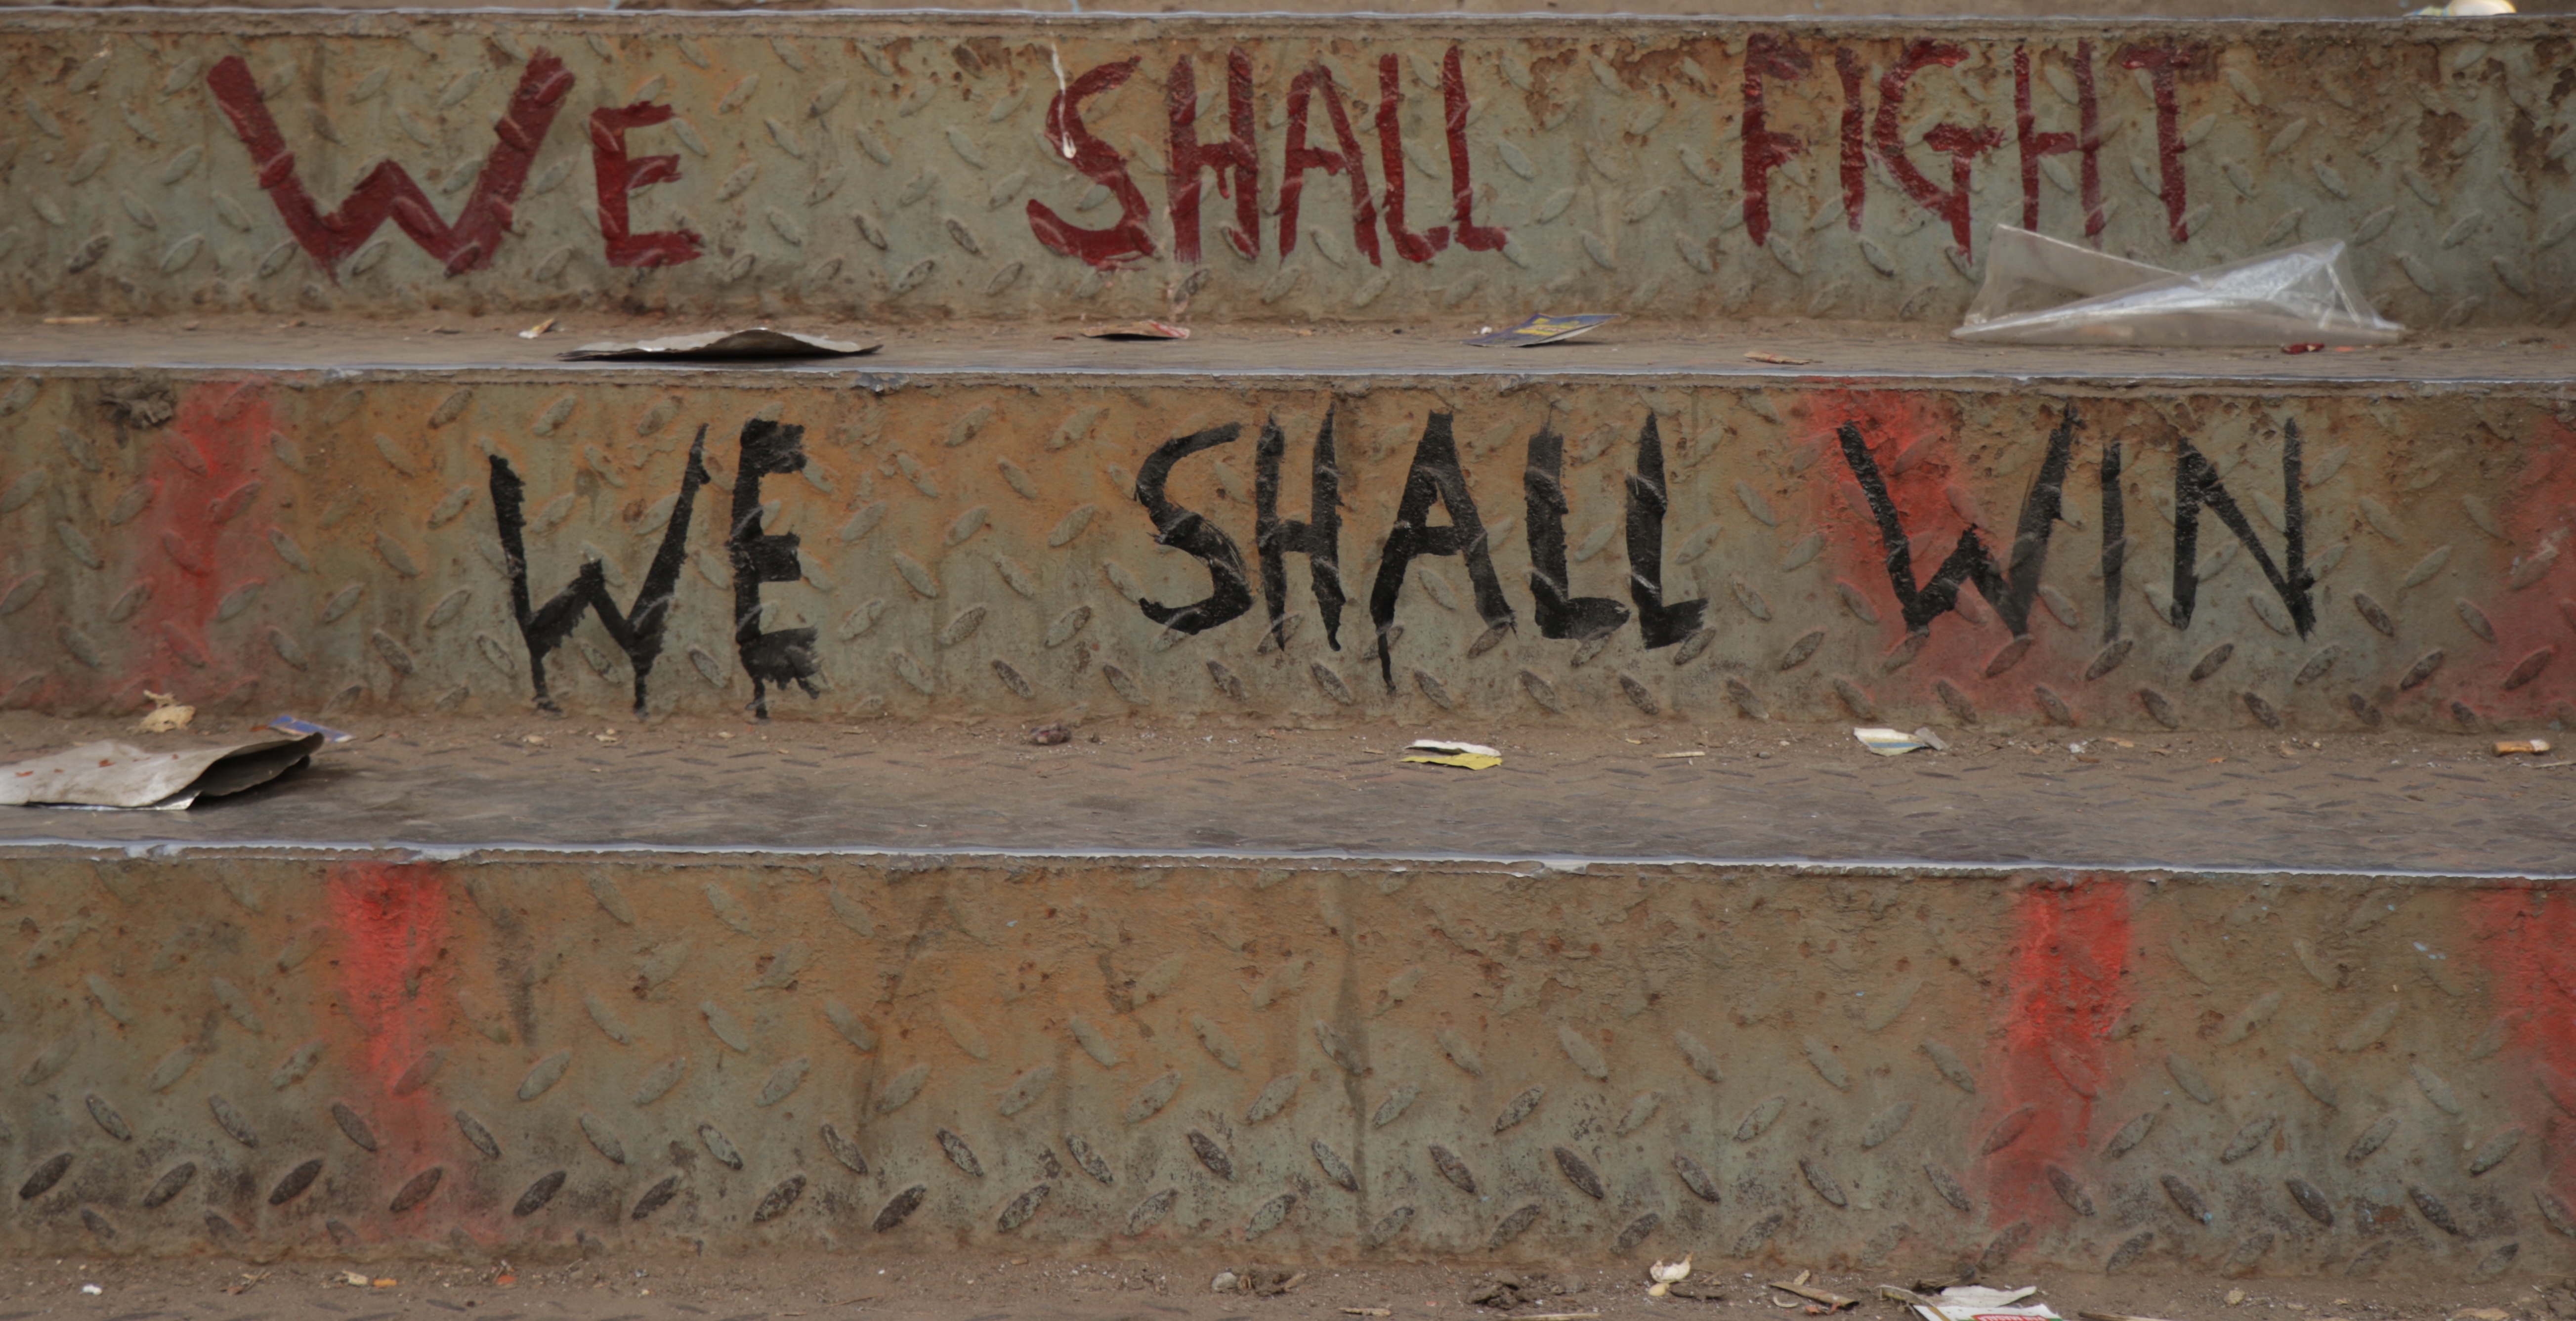 WE SHALL FIGHT
WE SHALL WIN